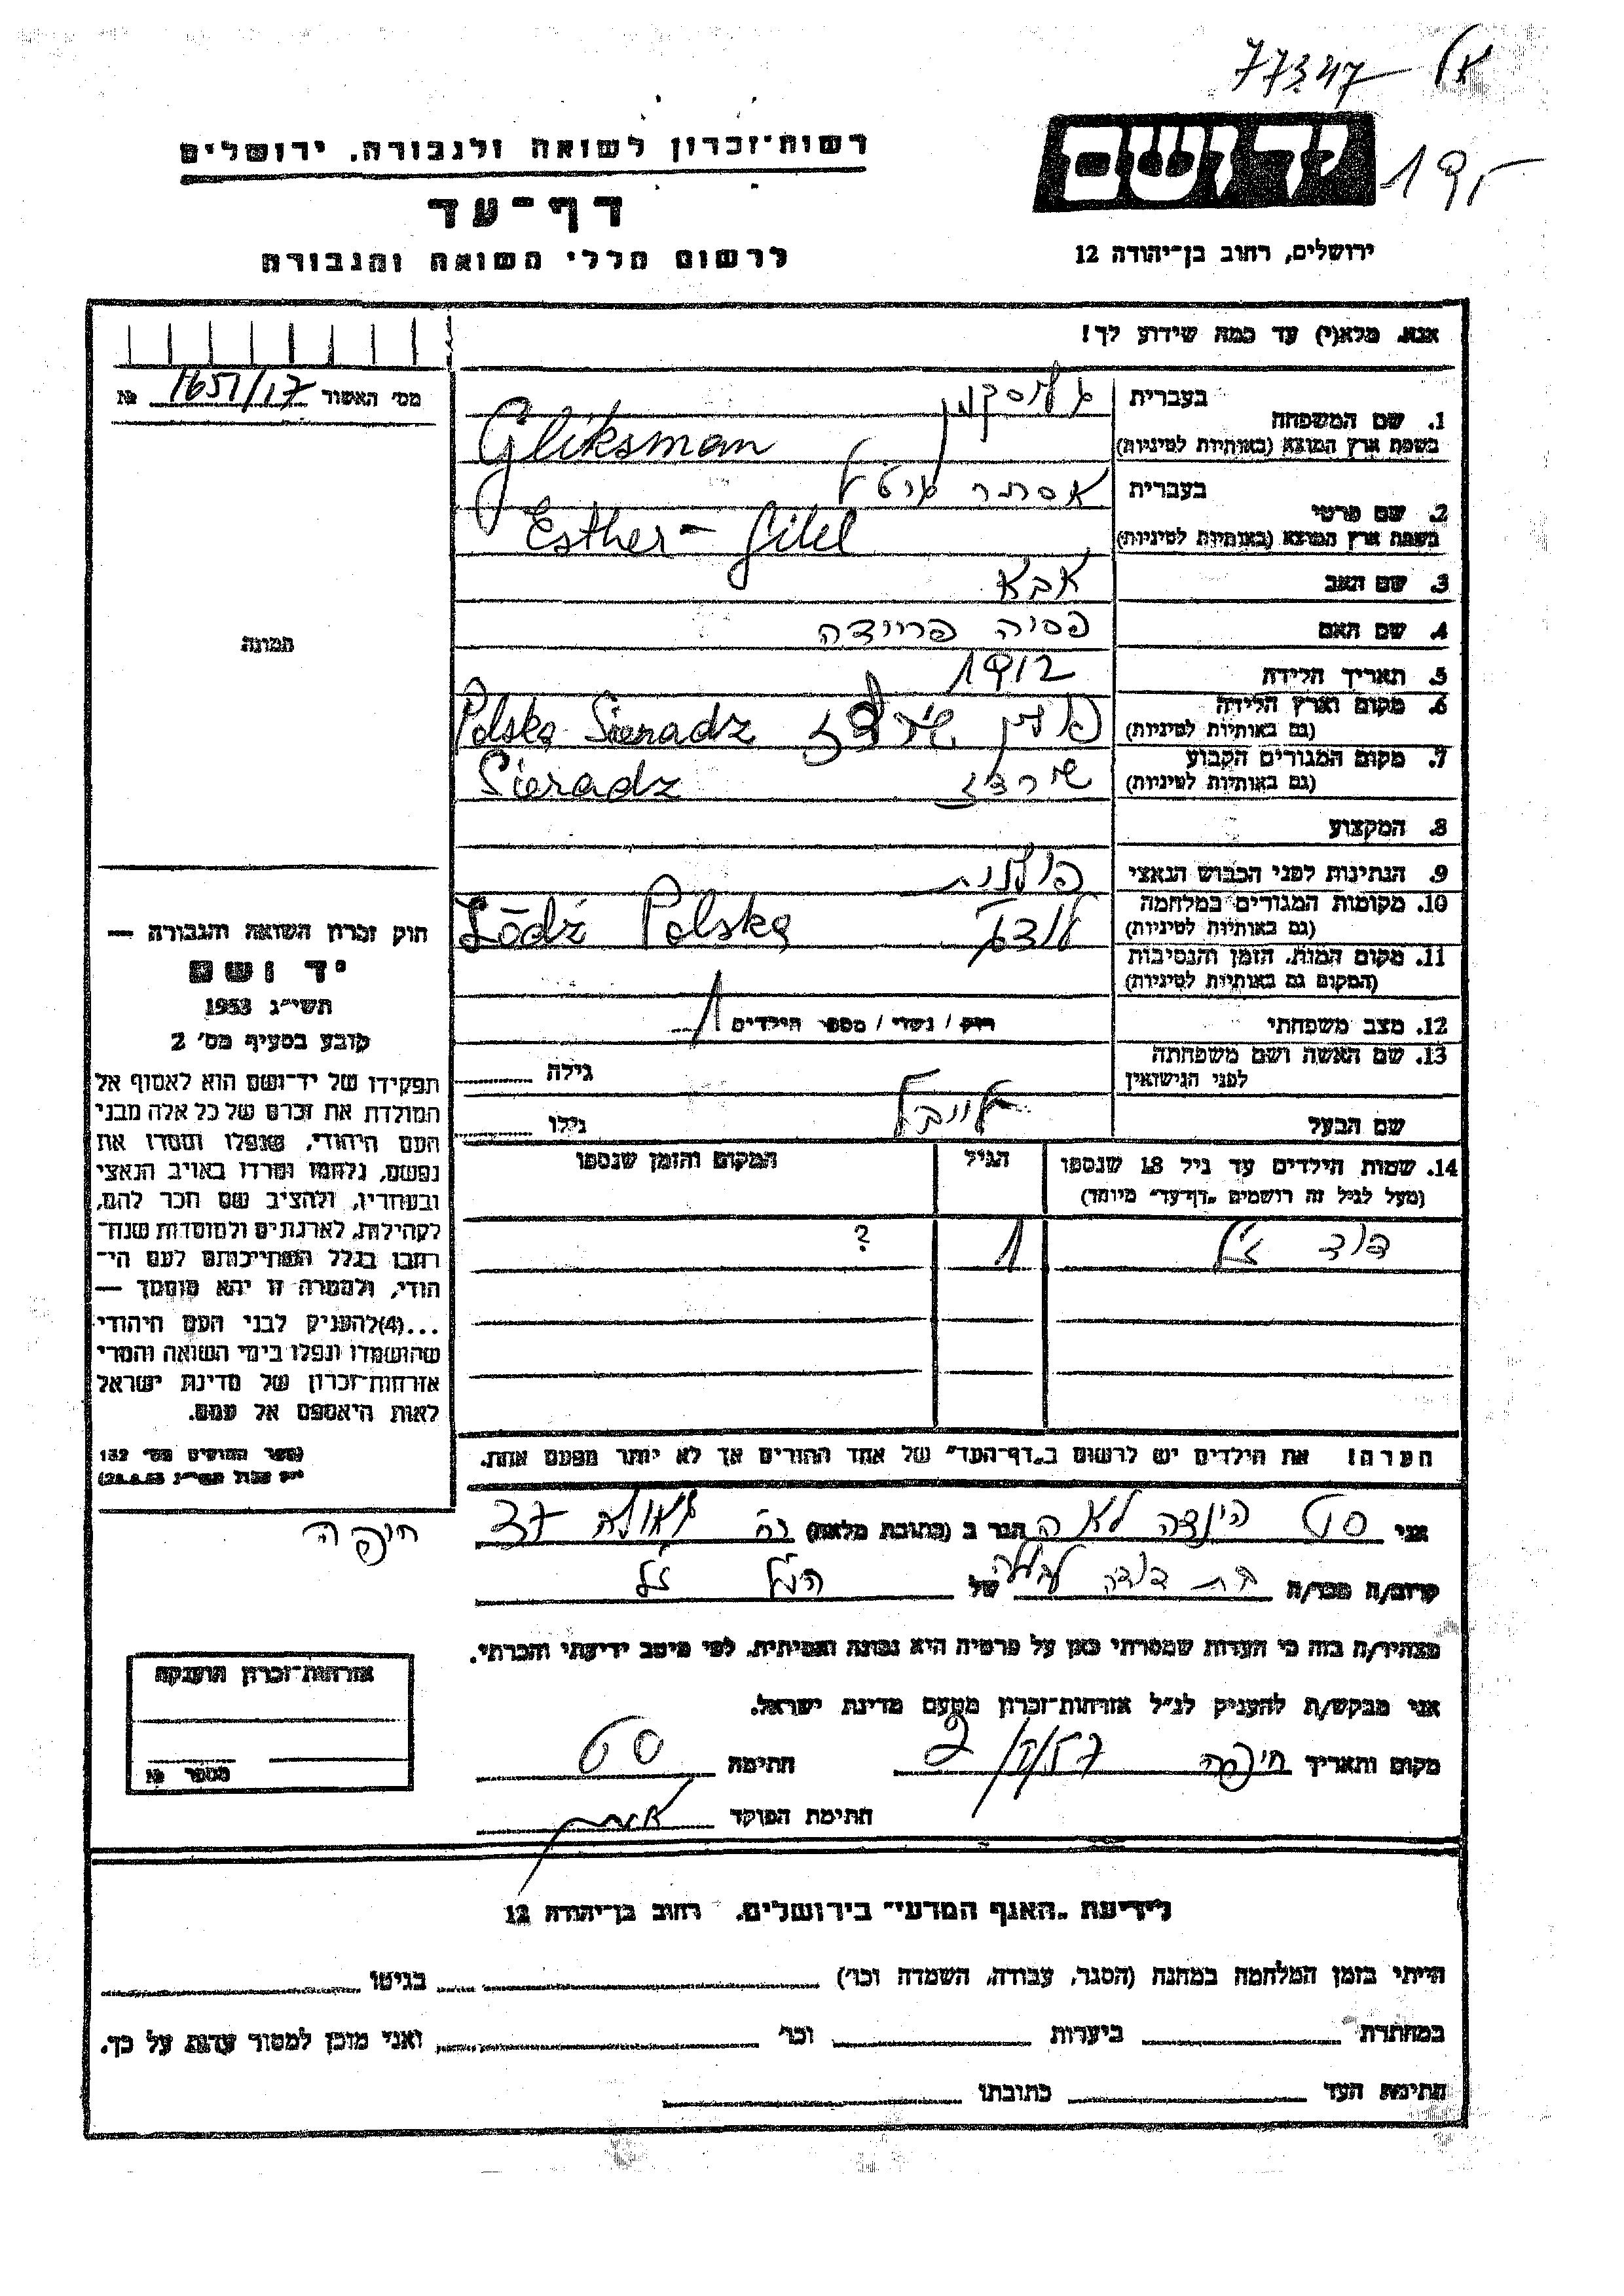 77347 אל
יד ושם
195
רשות־זכרון לשואה ולגבורה, ירושלים
דף־עד
לרשום חללי השואה והגבורה
ירושלים, רחוב בן־יהודה 12
אנא, מלא(י) עד כמה שידוע לך!
מס׳ האשור № 1651/17
1. שם המשפחה בעברית גליקסמן
בשפת ארץ המוצא (באותיות לטיניות) Gliksman
2. שם פרטי בעברית אסתר גיטל
בשפת ארץ המוצא (באותיות לטיניות) Esther - Gitel
3. שם האב אבא
4. שם האם פסיה פריידה
5. תאריך הלידה 1912
6. מקום וארץ הלידה (גם באותיות לטיניות) פולין Polska Sieradz
7. מקום המגורים הקבוע (גם באותיות לטיניות) שירדז Sieradz
8. המקצוע
9. הנתינות לפני הכבוש הנאצי פולנית
10. מקומות המגורים במלחמה (גם באותיות לטיניות) לודז׳ Łódź Polska
11. מקום המות, הזמן והנסיבות (המקום גם באותיות לטיניות)
12. מצב משפחתי רוק / נשוי / מספר הילדים 1
13. שם האשה ושם משפחתה לפני הנישואין גילה
שם הבעל לייבל גילו
14. שמות הילדים עד גיל 18 שנספו
(מעל לגיל זה רושמים „דף־עד״ מיוחד)
הגיל
המקום והזמן שנספו
דוד ז״ל 1 ?
הערה! את הילדים יש לרשום ב„דף־העד״ של אחד ההורים אך לא יותר מפעם אחת.
תמונה
חוק זכרון השואה והגבורה —
יד ושם
תשי״ג 1953
קובע בסעיף מס׳ 2
תפקידו של יד־ושם הוא לאסוף אל
המולדת את זכרם של כל אלה מבני
העם היהודי, שנפלו ומסרו את
נפשם, נלחמו ומרדו באויב הנאצי
ובעוזריו, ולהציב שם וזכר להם,
לקהילות, לארגונים ולמוסדות שנח־
רבו בגלל השתייכותם לעם הי־
הודי, ולמטרה זו יהא מוסמך —
...(4)להעניק לבני העם היהודי
שהושמדו ונפלו בימי השואה והמרי
אזרחות־זכרון של מדינת ישראל
לאות היאספם אל עמם.
(ספר החוקים מס׳ 132
י״ז אלול תשי״ג 28.8.53)
אני סט הינדה לאה הגר ב (כתובת מלאה) רח׳ גאולה 37 חיפה
קרוב/ה מכר/ה בת דודה של הנ״ל ז״ל
מצהיר/ה בזה כי העדות שמסרתי כאן על פרטיה היא נכונה ואמיתית, לפי מיטב ידיעתי והכרתי.
אני מבקש/ת להעניק לנ״ל אזרחות־זכרון מטעם מדינת ישראל.
מקום ותאריך חיפה חתימה סט
חתימת הפוקד
אזרחות־זכרון הוענקה
מספר №
לידיעת „האגף המדעי״ בירושלים, רחוב בן־יהודה 12
הייתי בזמן המלחמה במחנה (הסגר, עבודה, השמדה וכו׳) בגיטו
במחתרת ביערות וכו׳ ואני מוכן למסור עדות על כך.
חתימת העד כתובתו